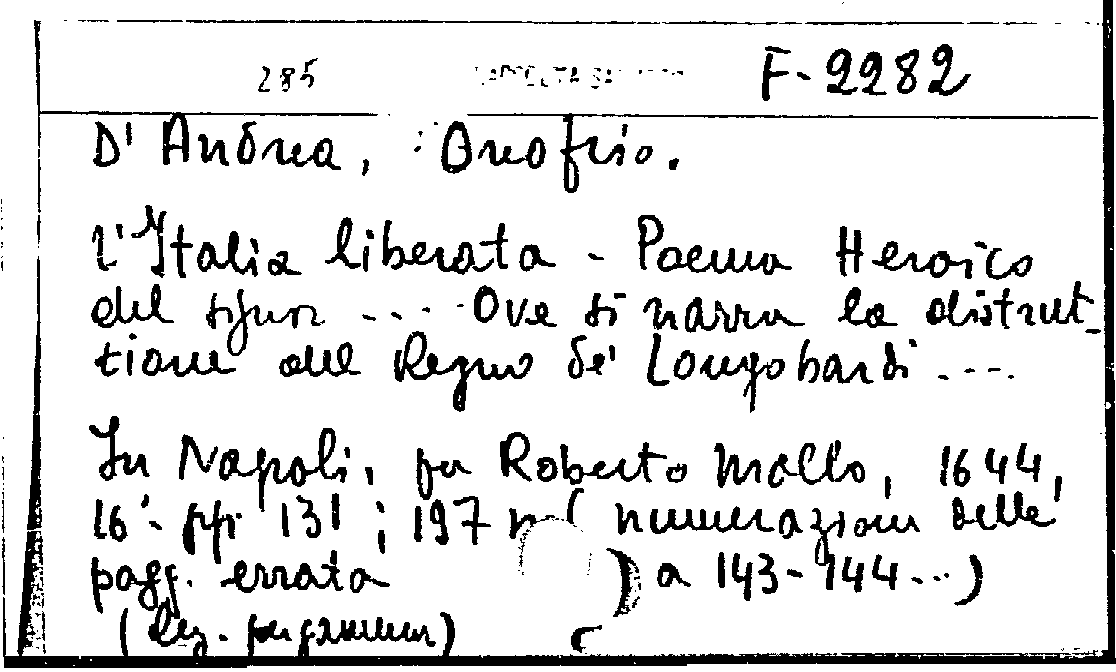 285 F-2282
D'Andrea, Onofrio.
L'Italia liberata - Poema Heroico
del signor .... Ove si narra la distrut-
tione del Regno de' Longobardi ....
In Napoli, per Roberto Mollo, 1644,
16°- pp. 131; 197 (numerazione delle
pagg. errata a 143-144...)
(Leg. pergamena)